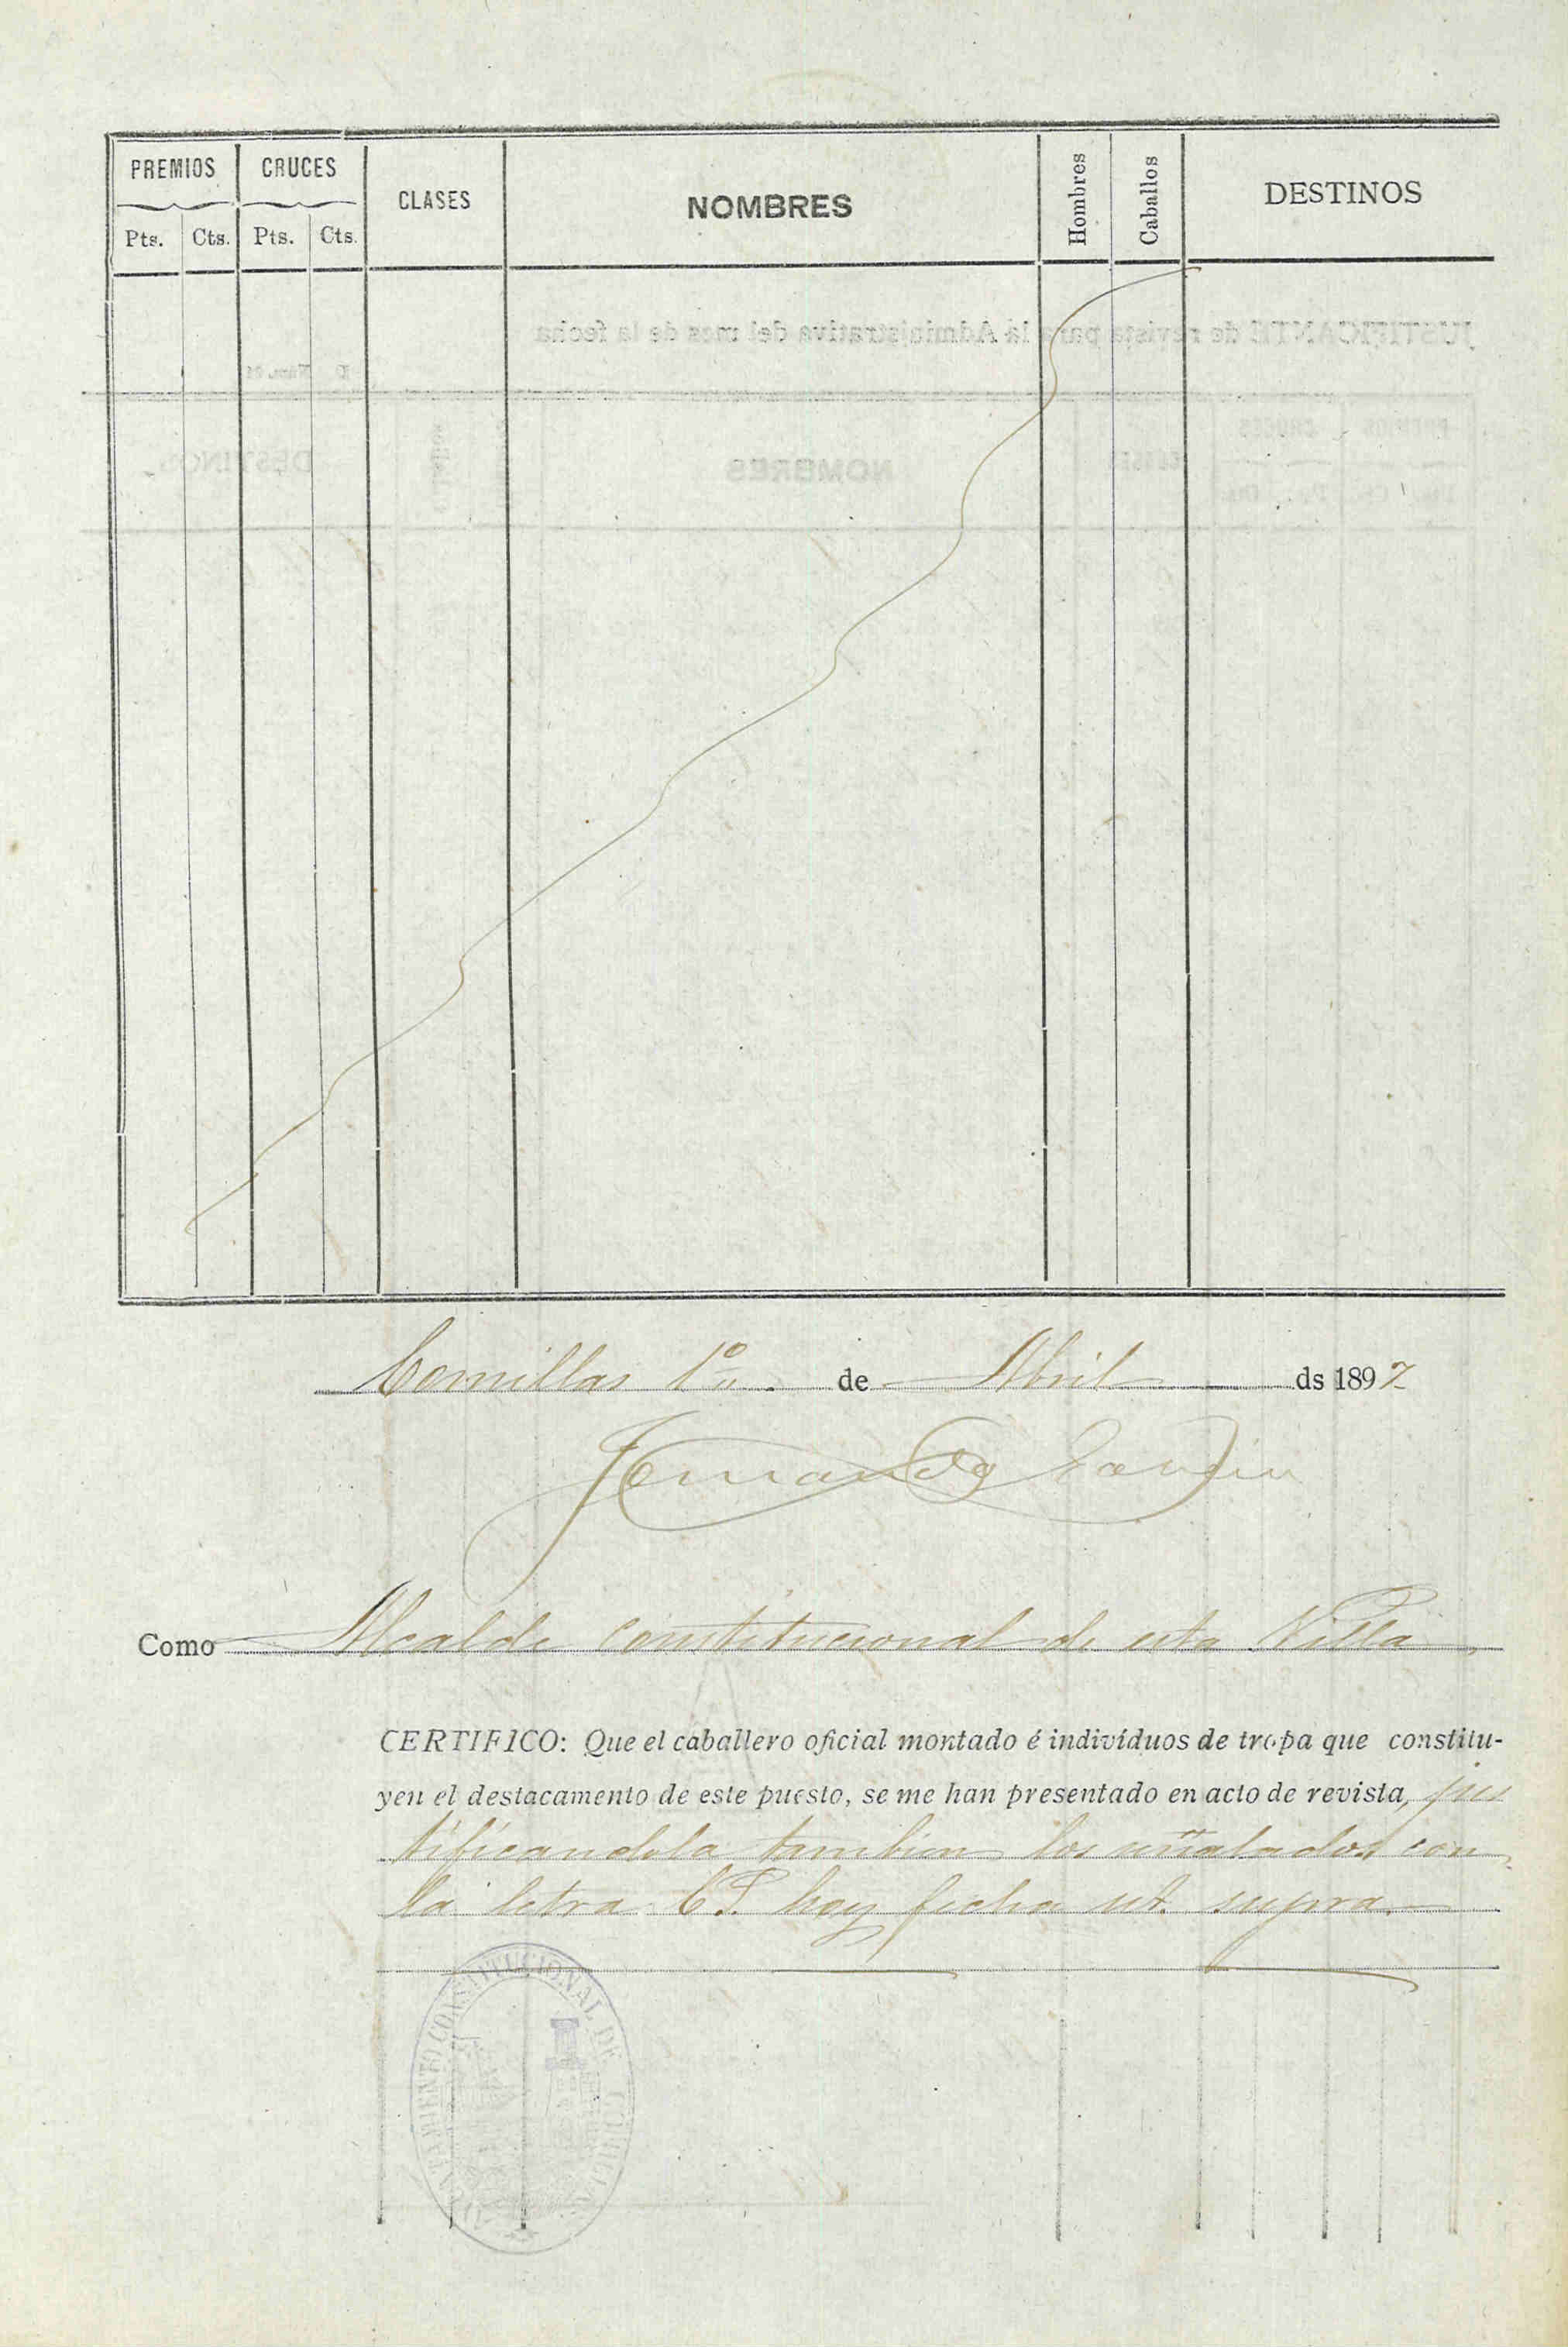 PREMIOS CRUCES CLASES NOMBRES Hombres Caballos DESTINOS
Pts. Cts. Pts. Cts.
Comillas 1º de Abril ds 1897
Fernando
Como Alcalde Constitucional de esta Villa
CERTIFICO: Que el caballero oficial montado é indivíduos de tropa que constitu-
yen el destacamento de este puesto, se me han presentado en acto de revista, jus
tificandola tambien los señalados con
la letra C.P. hoy fecha ut. supra.
AYUNTAMIENTO CONSTITUCIONAL DE COMILLAS